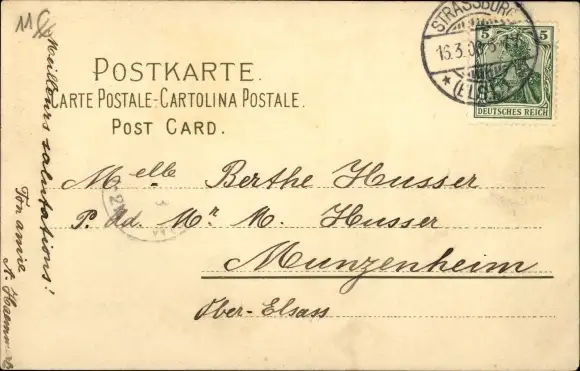 POSTKARTE.
CARTE POSTALE-CARTOLINA POSTALE.
POST CARD.
STRASSBURG
16.3.0
* (ELS.)
5 5
DEUTSCHES REICH
Melle Berthe Husser
P. Ad. Mr M. Husser
Munzenheim
Ober-Elsass
Meilleurs salutations!
Ton amie